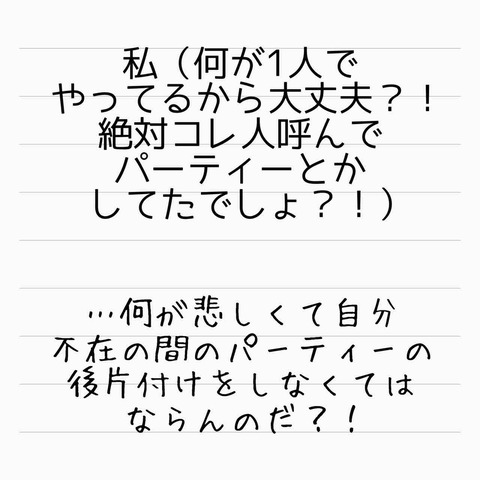 私（何が1人で
やってるから大丈夫？！
絶対コレ人呼んで
パーティーとか
してたでしょ？！）
…何が悲しくて自分
不在の間のパーティーの
後片付けをしなくては
ならんのだ？！